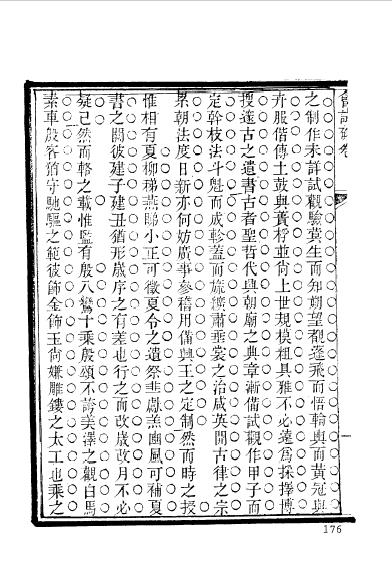 之制作未詳試觀驗蓂生而知朔望覩蓬飛而悟輪輿而黃冠與
卉服偕傳土鼓與蕢桴並尙上世規模粗具雅不必遠爲採擇博
搜邃古之遺書古者聖哲代興朝廟之典章漸備試觀作甲子而
定幹枝法斗魁而成軫蓋而旒纊肅垂裳之治咸英開古律之宗
累朝法度日新亦何妨廣事參稽用備興王之定制然而時之授
惟相有夏柳稊燕睇小正可徵夏令之遺祭韭獻羔豳風可補夏
書之闕彼建子建丑猶形歲序之有差也行之而改歲改月不必
疑已然而輅之載惟監有殷八鸞十乘殷頌不誇美澤之觀白馬
素車殷客猶守馳驅之範彼飾金飾玉尙嫌雕鏤之太工也乘之
176